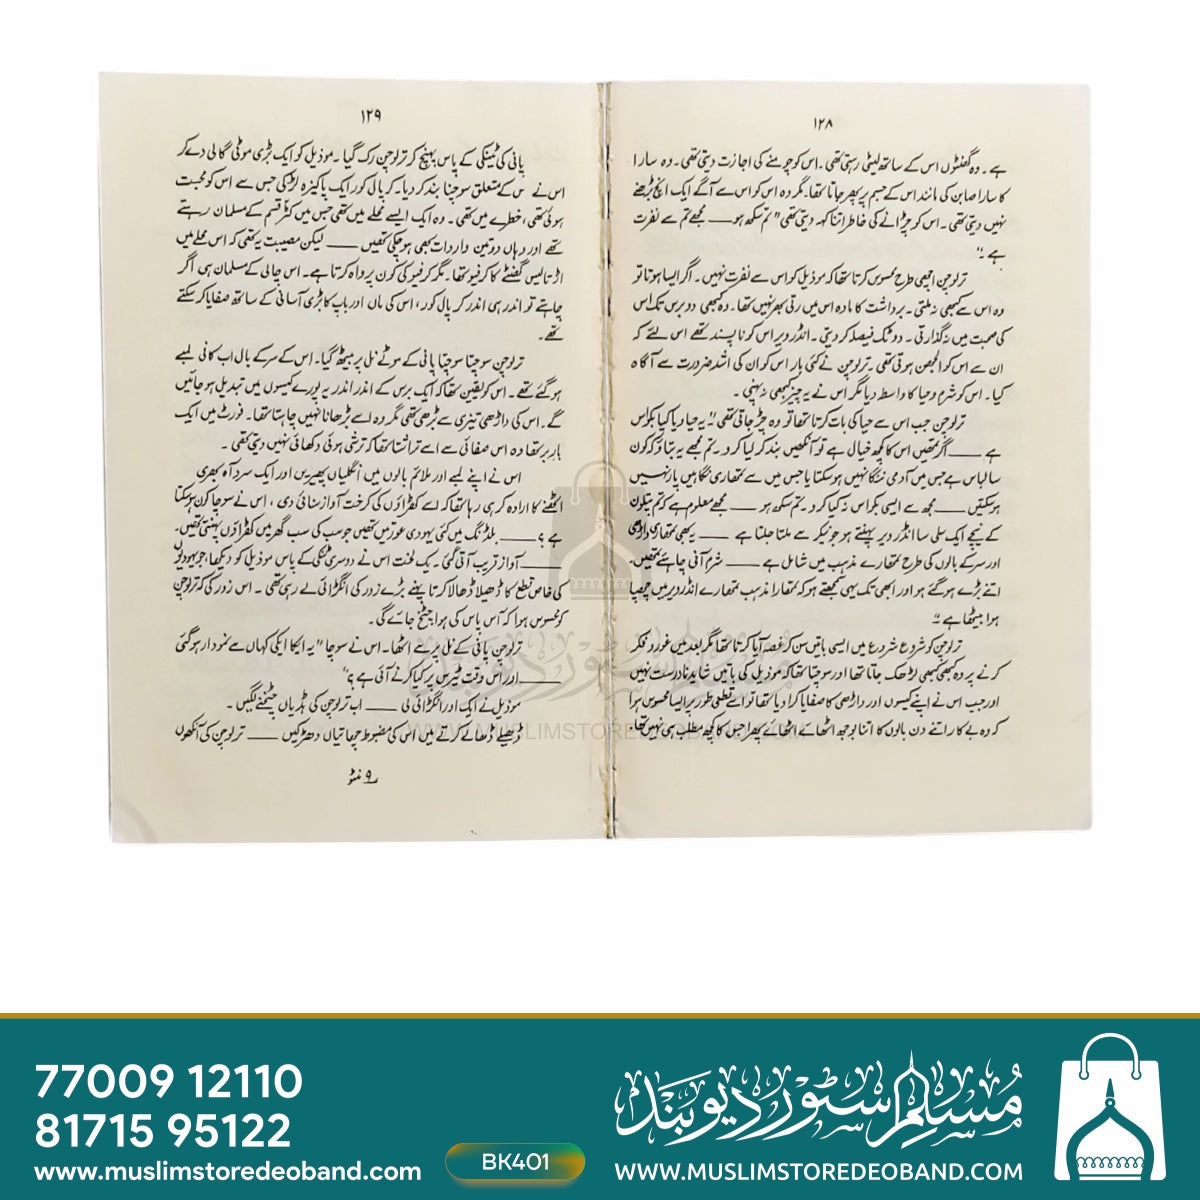 ۱۲۸
ہے۔ وہ گھنٹوں اس کے ساتھ لیٹی رہتی تھی۔ اس کو چومنے کی اجازت دیتی تھی۔ وہ سارا
کا سارا صابن کی مانند اس کے جسم پر پھر جاتا تھا۔ مگر وہ اس کو اس سے آگے ایک انچ بڑھنے
نہیں دیتی تھی۔ اس کو چڑانے کی خاطر اتنا کہہ دیتی تھی "تم سکھ ہو ـــــ مجھے تم سے نفرت
ہے۔"
ترلوچن اچھی طرح محسوس کرتا تھا کہ موذیل کو اس سے نفرت نہیں۔ اگر ایسا ہوتا تو
وہ اس سے کبھی نہ ملتی۔ برداشت کا مادہ اس میں رتی بھر نہیں تھا۔ وہ کبھی دو برس تک اس
کی صحبت میں نہ گذارتی۔ دو ٹوک فیصلہ کر دیتی۔ انڈرویر اس کو ناپسند تھے اس لئے کہ
ان سے اس کو الجھن ہوتی تھی۔ ترلوچن نے کئی بار اس کو ان کی اشد ضرورت سے آگاہ
کیا۔ اس کو شرم و حیا کا واسطہ دیا مگر اس نے یہ چیز کبھی نہ پہنی۔
ترلوچن جب اس سے حیا کی بات کرتا تھا تو وہ چڑ جاتی تھی۔ "یہ حیا ویا کیا بکواس
ہے ـــــ اگر تمہیں اس کا کچھ خیال ہے تو آنکھیں بند کر لیا کرو۔ تم مجھے یہ بتاؤ کہ کون
سا لباس ہے جس میں آدمی ننگا نہیں ہو سکتا یا جس میں سے تمہاری نگاہیں پار نہیں
ہو سکتیں ـــــ مجھ سے ایسی بکواس نہ کیا کرو۔ تم سکھ ہو ـــــ مجھے معلوم ہے کہ تم پتلون
کے نیچے ایک سلی سا انڈرویر پہنتے ہو جو نیکر سے ملتا جلتا ہے ـــــ یہ بھی تمہاری داڑھی
اور سر کے بالوں کی طرح تمہارے مذہب میں شامل ہے ـــــ شرم آنی چاہئے تمہیں۔
اتنے بڑے ہو گئے ہو اور ابھی تک یہی سمجھتے ہو کہ تمہارا مذہب تمہارے انڈرویر میں چھپا
ہوا بیٹھا ہے۔"
ترلوچن کو شروع شروع میں ایسی باتیں سن کر غصہ آیا کرتا تھا مگر بعد میں غور و فکر
کرنے پر وہ کبھی کبھی لڑھک جاتا تھا اور سوچتا تھا کہ موذیل کی باتیں شاید نادرست نہیں
اور جب اس نے اپنے کیسوں اور داڑھی کا صفایا کرا دیا تھا تو اسے قطعی طور پر ایسا محسوس ہوا
کہ وہ بے کار اتنے دن بالوں کا اتنا بوجھ اٹھائے اٹھائے پھرا جس کا کچھ مطلب ہی نہیں تھا۔
۱۲۹
پانی کی ٹینکی کے پاس پہنچ کر ترلوچن رک گیا۔ موذیل کو ایک بڑی موٹی گالی دے کر
اس نے اس کے متعلق سوچنا بند کر دیا۔ کرپال کور ایک پاکیزہ لڑکی جس سے اس کو محبت
ہوئی تھی، خطرے میں تھی۔ وہ ایک ایسے محلے میں تھی جس میں کٹر قسم کے مسلمان رہتے
تھے اور وہاں دو تین واردات بھی ہو چکی تھیں ـــــ لیکن مصیبت یہ تھی کہ اس محلے میں
اڑتالیس گھنٹے کا کرفیو تھا۔ مگر کرفیو کی کون پرواہ کرتا ہے۔ اس چالی کے مسلمان ہی اگر
چاہتے تو اندر ہی اندر کرپال کور، اس کی ماں اور باپ کا بڑی آسانی کے ساتھ صفایا کر سکتے
تھے۔
ترلوچن سوچتا سوچتا پانی کے موٹے نل پر بیٹھ گیا۔ اس کے سر کے بال اب کافی لمبے
ہو گئے تھے۔ اس کو یقین تھا کہ ایک برس کے اندر اندر یہ پورے کیسوں میں تبدیل ہو جائیں
گے۔ اس کی داڑھی تیزی سے بڑھی تھی مگر وہ اسے بڑھانا نہیں چاہتا تھا۔ فورٹ میں ایک
باربر تھا وہ اس صفائی سے اسے تراشتا تھا کہ ترشی ہوئی دکھائی نہیں دیتی تھی۔
اس نے اپنے لمبے اور ملائم بالوں میں انگلیاں پھیریں اور ایک سرد آہ بھری
اٹھنے کا ارادہ کر ہی رہا تھا کہ اسے کھڑاؤں کی کرخت آواز سنائی دی، اس نے سوچا کون ہو سکتا
ہے؟ ـــــ بلڈنگ میں کئی یہودی عورتیں تھیں جو سب کی سب گھر میں کھڑاؤں پہنتی تھیں۔
ـــــ آواز قریب آتی گئی۔ یک لخت اس نے دوسری ٹنکی کے پاس موذیل کو دیکھا، جو یہودیوں
کی خاص قطع کا ڈھیلا ڈھالا کرتا پہنے بڑے زور کی انگڑائی لے رہی تھی۔ اس زور کی کہ ترلوچن
کو محسوس ہوا کہ آس پاس کی ہوا چٹخ جائے گی۔
ترلوچن پانی کے نل پر سے اٹھا۔ اس نے سوچا "یہ ایکا ایکی کہاں سے نمودار ہو گئی
ـــــ اور اس وقت ٹیرس پر کیا کرنے آئی ہے؟"
موذیل نے ایک اور انگڑائی لی ـــــ اب ترلوچن کی ہڈیاں چٹخنے لگیں۔
ڈھیلے ڈھالے کرتے میں اس کی مضبوط چھاتیاں دھڑکیں ـــــ ترلوچن کی آنکھوں
۹ منٹو
WWW.MUSLIMSTOREDEOBAND.COM
77009 12110
81715 95122
www.muslimstoredeoband.com
BK401
مسلم سٹور دیوبند
WWW.MUSLIMSTOREDEOBAND.COM